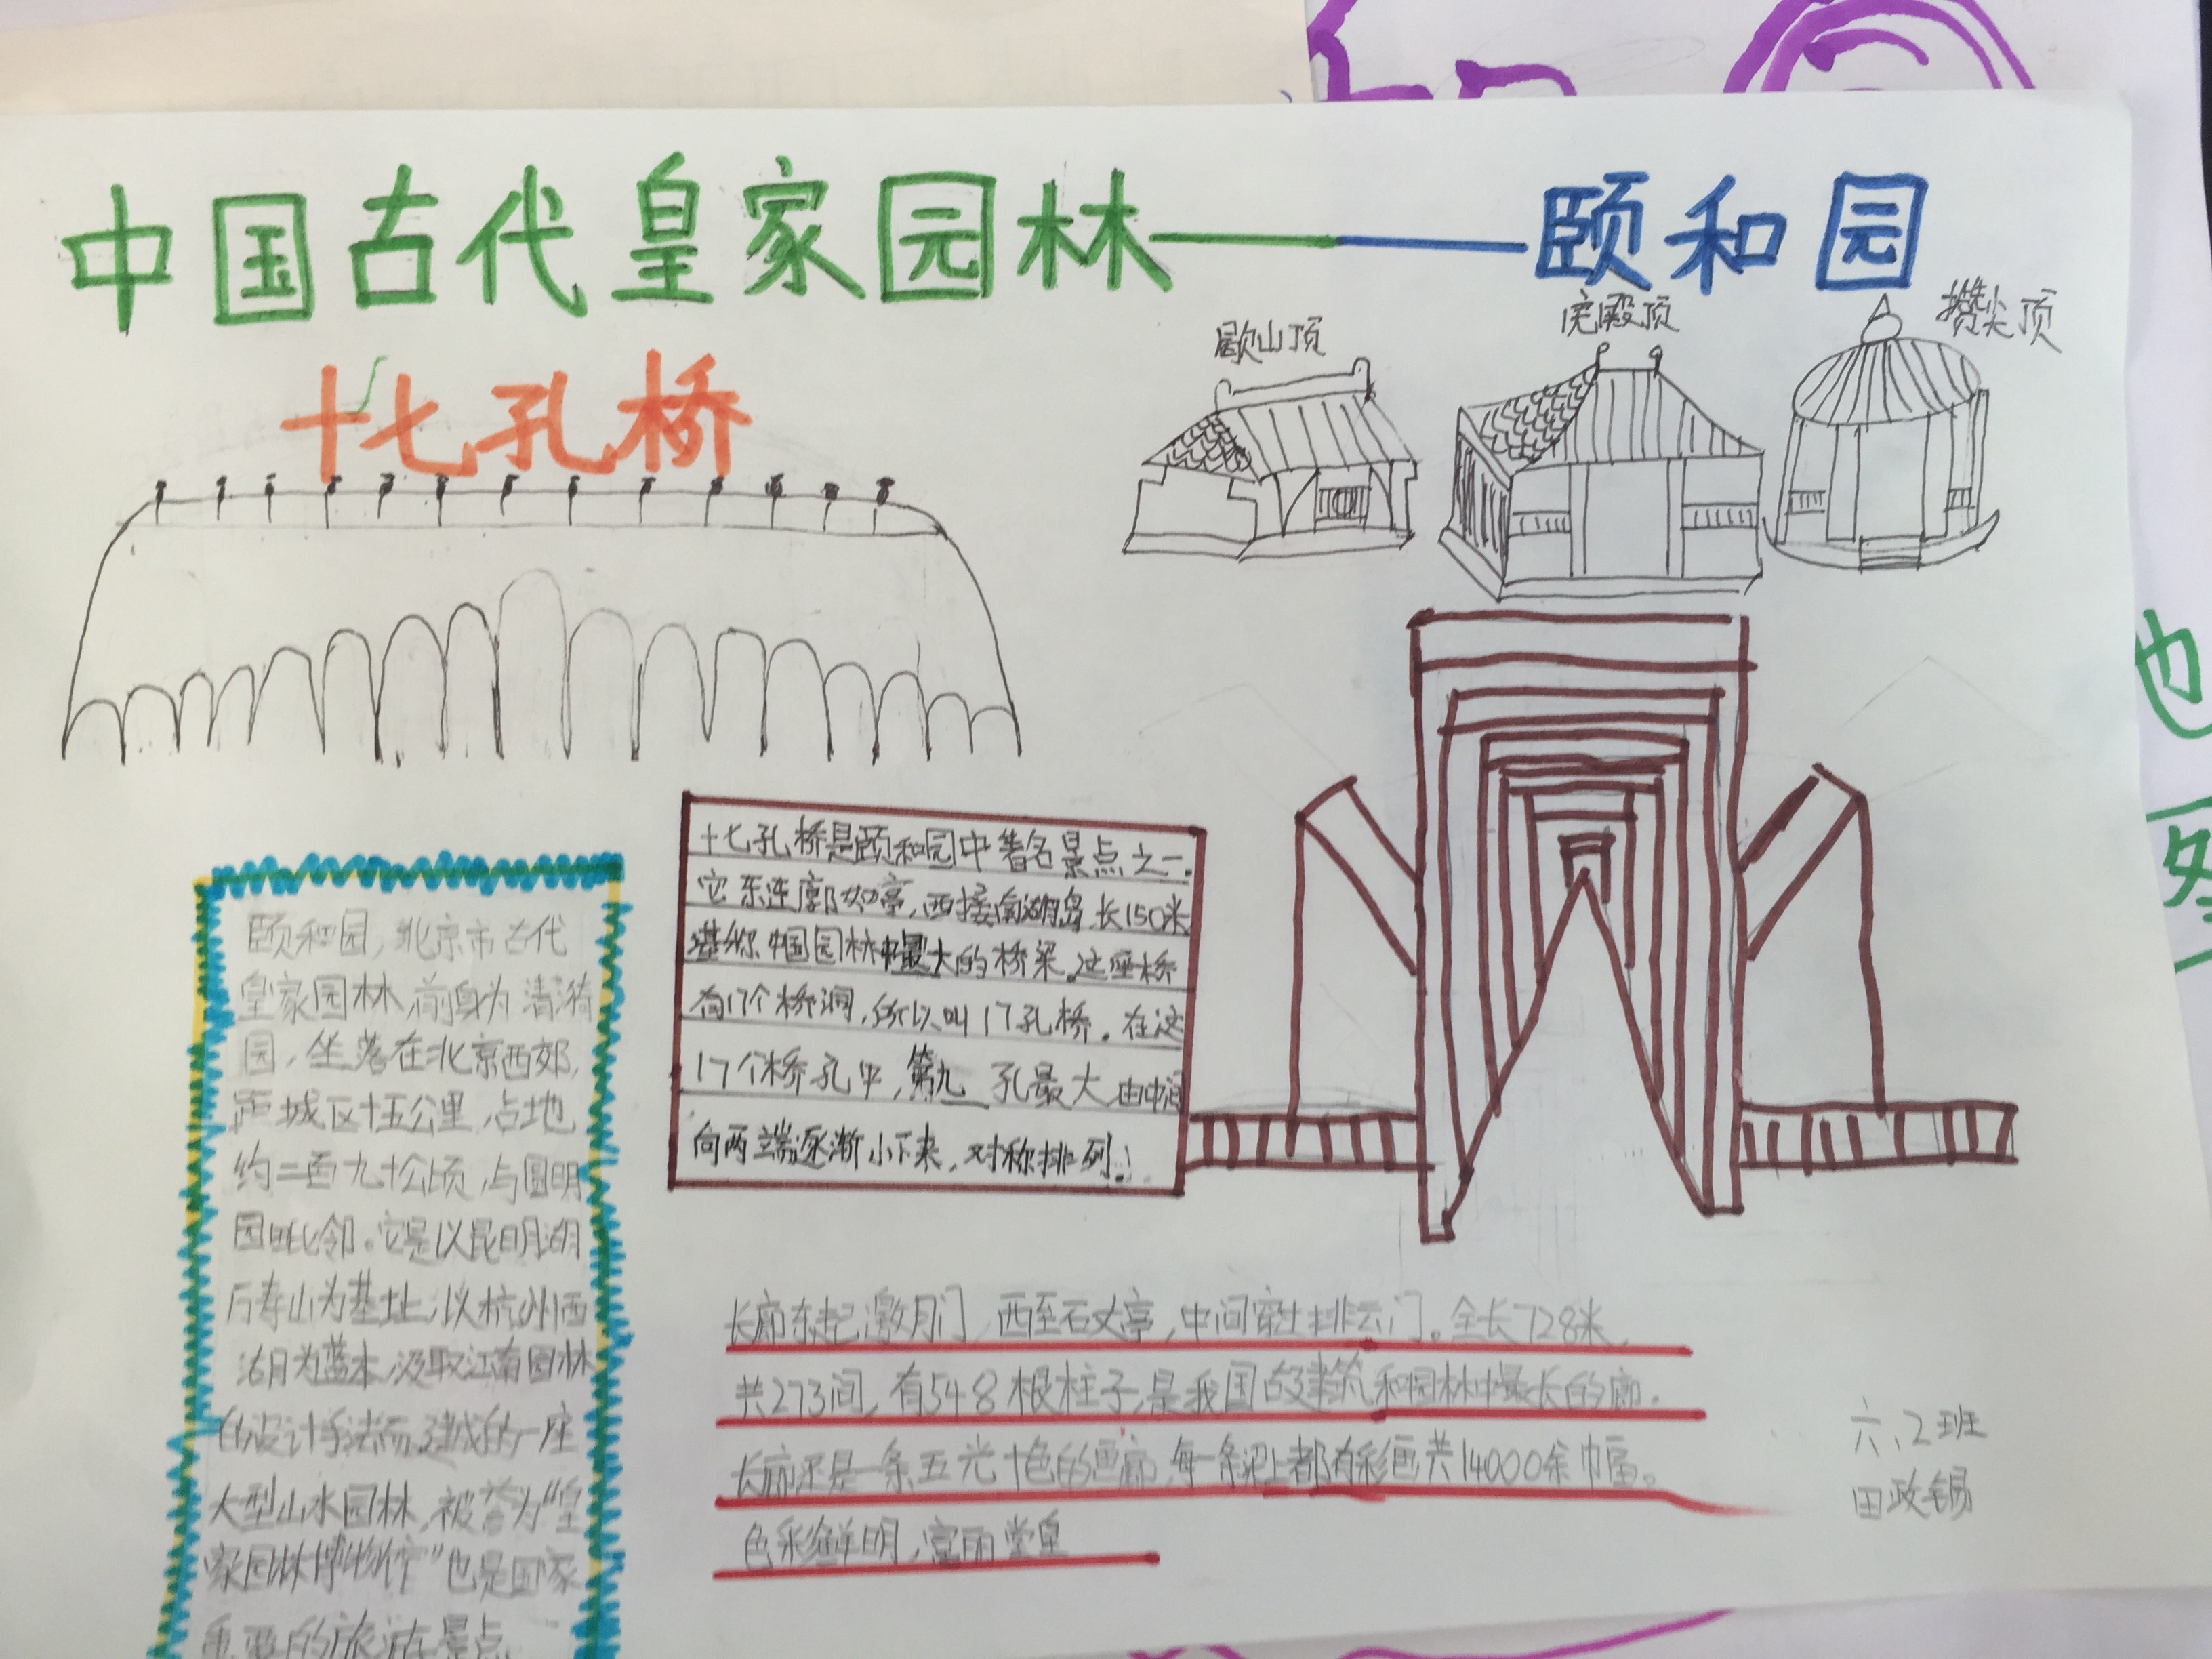 中国古代皇家园林——颐和园
十七孔桥
歇山顶
庑殿顶
攒尖顶
十七孔桥是颐和园中著名景点之一.
它东连廓如亭,西接南湖岛,长150米
堪称中国园林中最大的桥梁.这座桥
有17个桥洞,所以叫17孔桥.在这
17个桥孔中,第九孔最大由中间
向两端逐渐小下来,对称排列.
颐和园,北京市古代
皇家园林,前身为清漪
园,坐落在北京西郊,
距城区十五公里,占地
约二百九十公顷,与圆明
园毗邻。它是以昆明湖
万寿山为基址,以杭州西
湖为蓝本,汲取江南园林
的设计手法而建成的一座
大型山水园林,被誉为“皇
家园林博物馆”也是国家
重要的旅游景点
长廊东起邀月门,西至石丈亭,中间穿过排云门。全长728米,
共273间,有548根柱子,是我国古建筑和园林中最长的廊.
长廊还是一条五光十色的画廊,每一条梁上都有彩画共14000余幅。
色彩鲜明,富丽堂皇
六、2班
田政锡
也